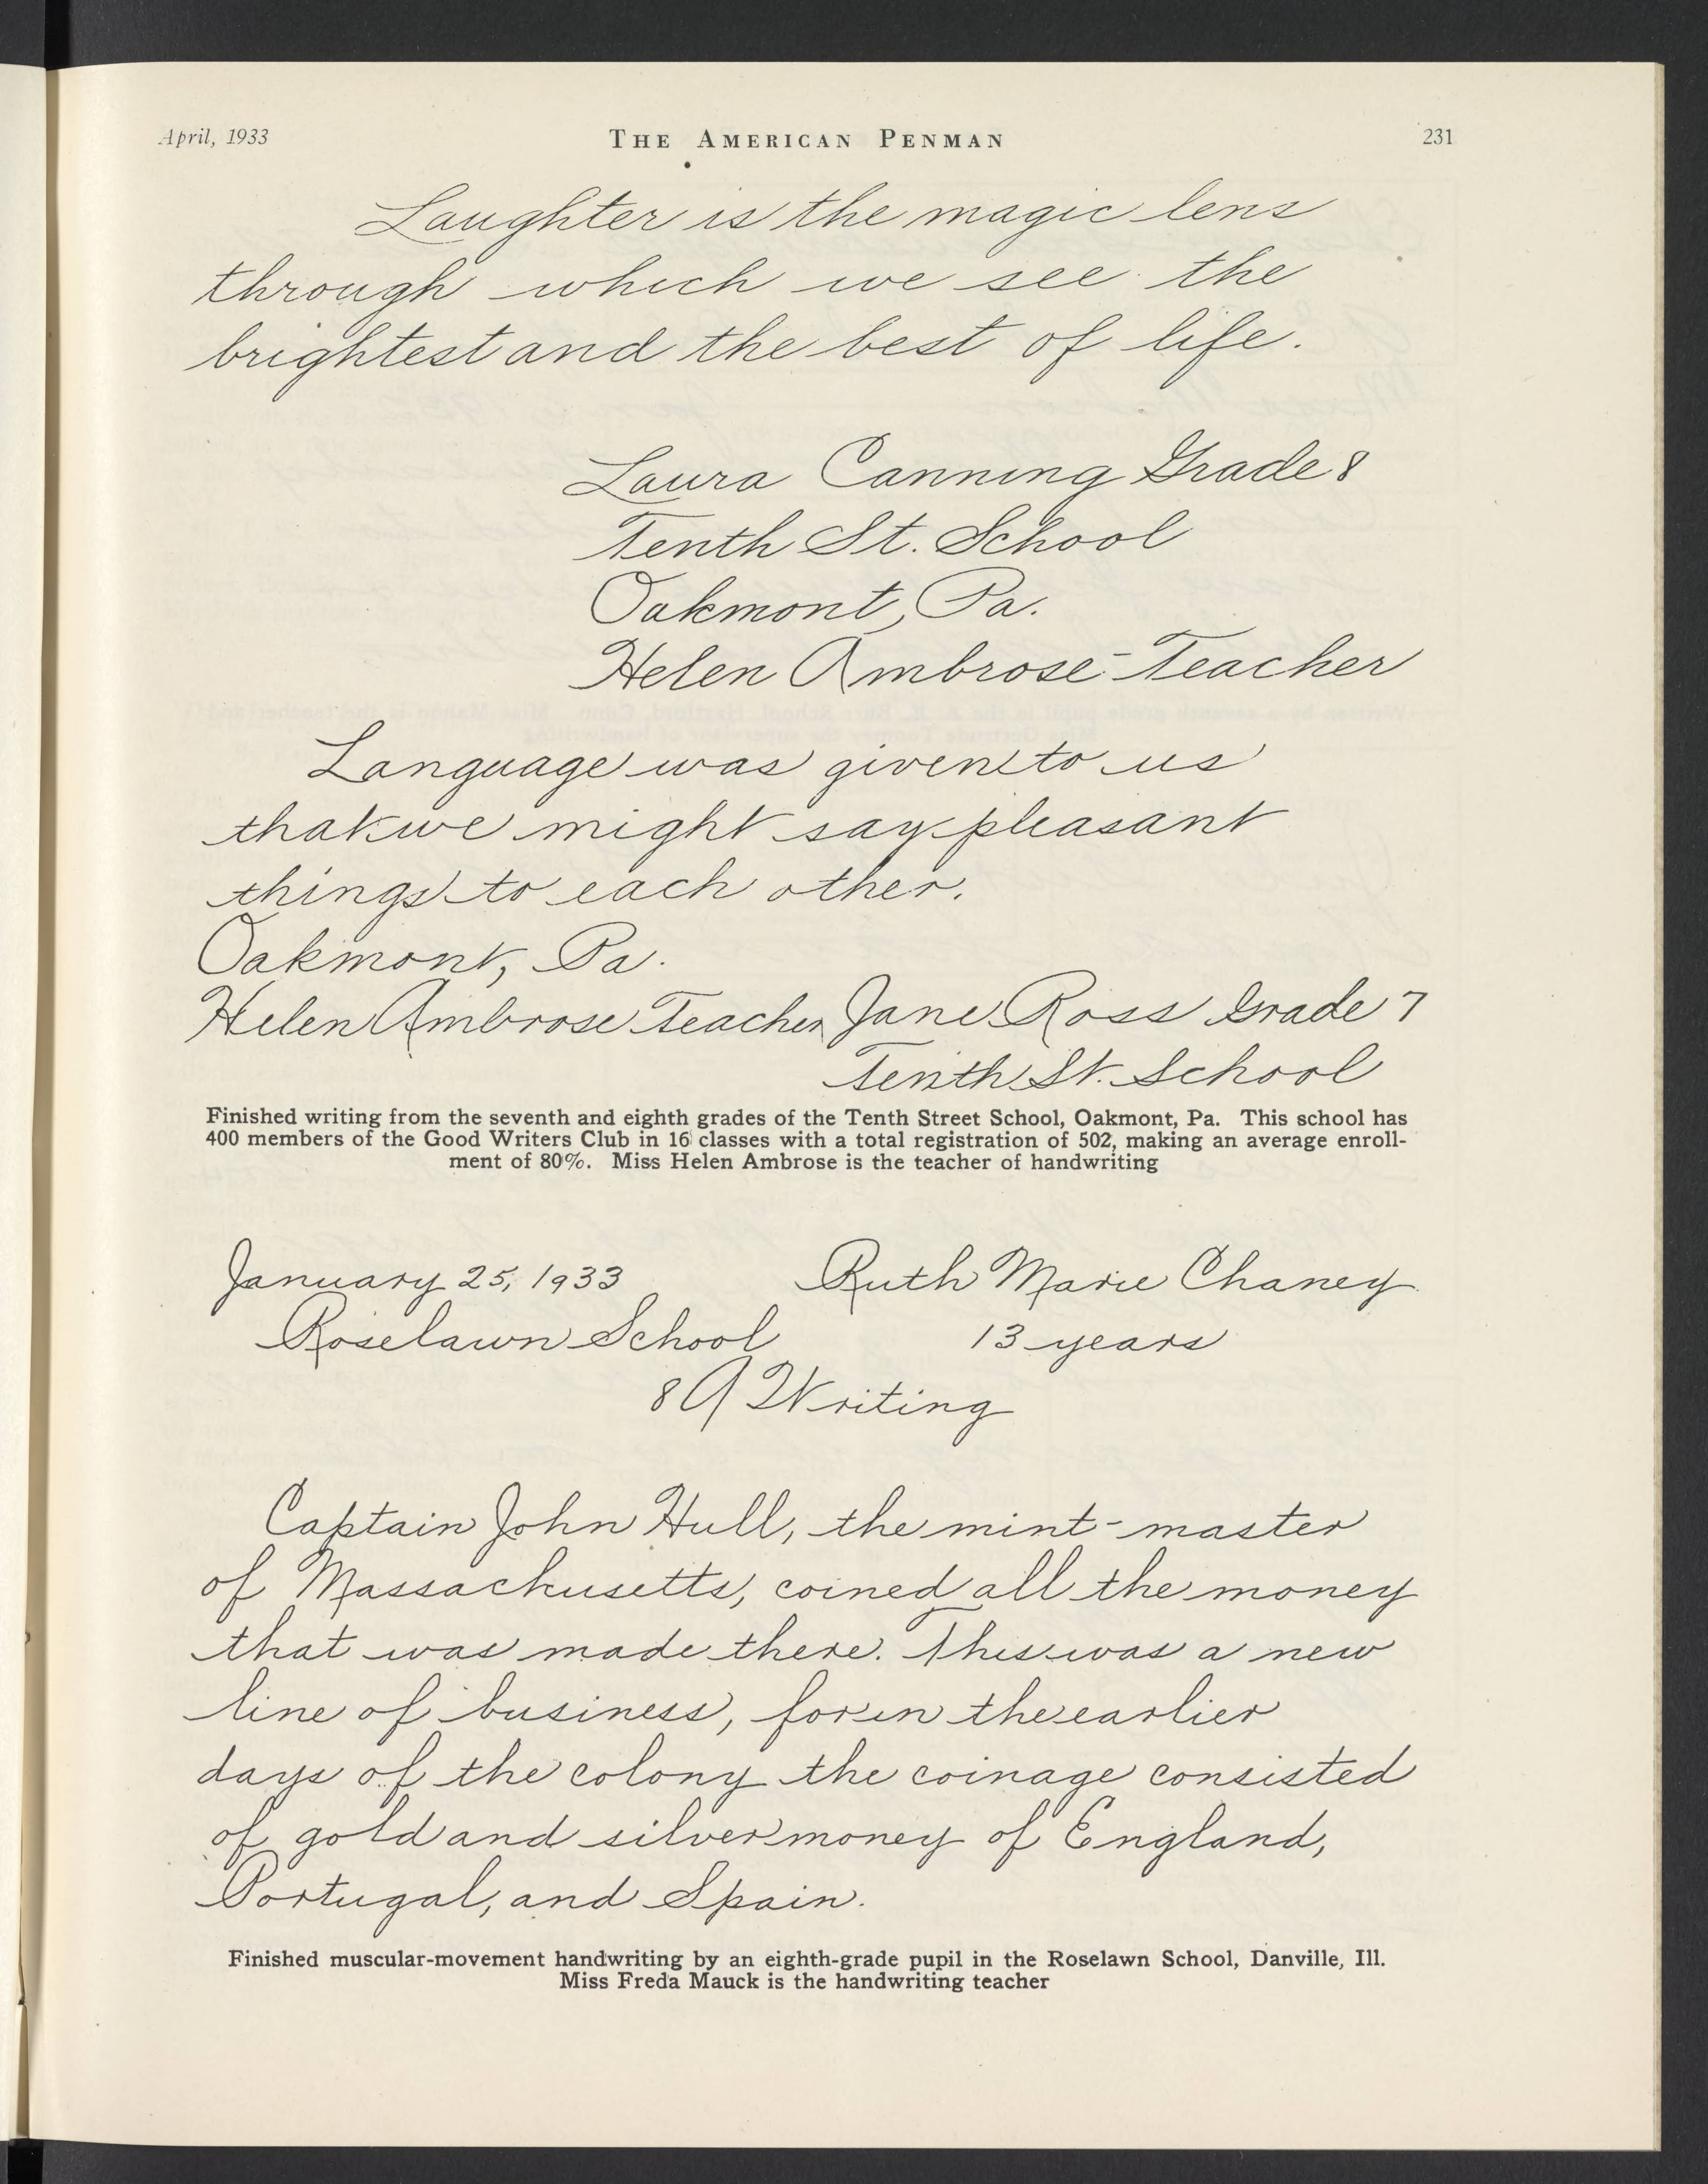 April, 1933 THE AMERICAN PENMAN 231
Laughter is the magic lens
through which we see the
brightest and the best of life.
Laura Canning Grade 8
Tenth St. School
Oakmont, Pa.
Helen Ambrose-Teacher
Language was given to us
that we might say pleasant
things to each other.
Oakmont, Pa.
Helen Ambrose Teacher Jane Ross Grade 7
Tenth St. School
Finished writing from the seventh and eighth grades of the Tenth Street School, Oakmont, Pa. This school has
400 members of the Good Writers Club in 16 classes with a total registration of 502, making an average enroll-
ment of 80%. Miss Helen Ambrose is the teacher of handwriting
January 25, 1933 Ruth Marie Chaney
Roselawn School 13 years
8A Writing
Captain John Hull, the mint-master
of Massachusetts, coined all the money
that was made there. This was a new
line of business, for in the earlier
days of the colony the coinage consisted
of gold and silver money of England,
Portugal, and Spain.
Finished muscular-movement handwriting by an eighth-grade pupil in the Roselawn School, Danville, Ill.
Miss Freda Mauck is the handwriting teacher